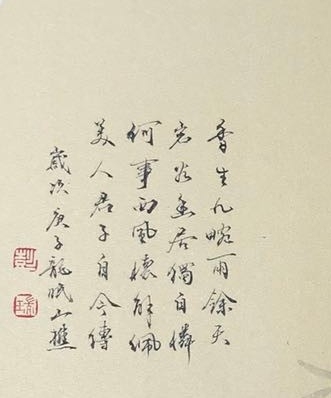 香生九畹雨餘天
空谷幽居獨自憐
何事西風懷解佩
美人君子自今傳
歲次庚子龍眠山樵